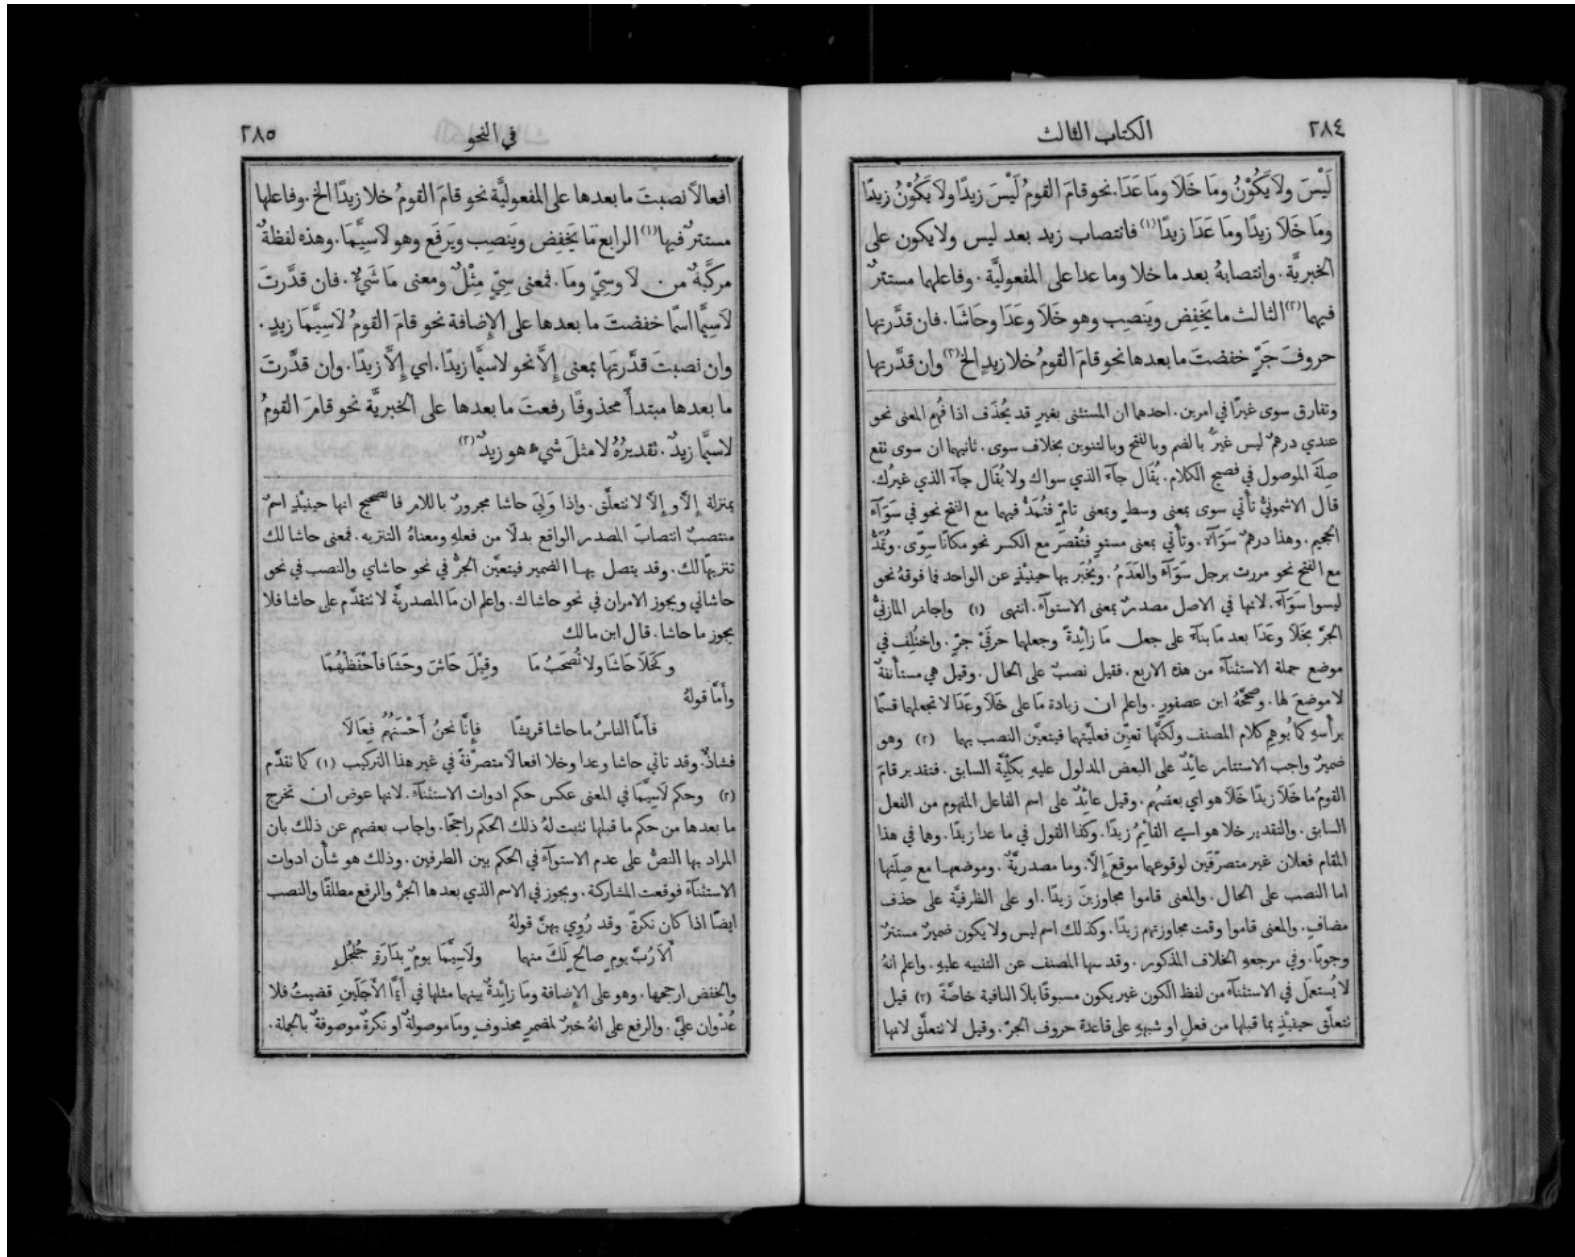 ٢٨٤
الكتاب الثالث
لَيْسَ ولَا يَكُوْنُ ومَا خَلَا ومَا عَدَا. نحو قامَ القومُ لَيْسَ زيدًا ولَا يَكُوْنُ زيدًا
ومَا خَلَا زيدًا ومَا عَدَا زيدًا (١) فانتصاب زيد بعد ليس ولا يكون على
الخبريَّة. وانتصابهُ بعد ما خلا وما عدا على المفعوليَّة. وفاعلهما مستترٌ
فيهما (٢) الثالث ما يَخفِض ويَنصِب وهو خَلَا وعَدَا وحَاشَا. فان قدَّرتها
حروفَ جَرٍّ خفضتَ ما بعدها نحو قامَ القومُ خلا زيدٍ الخ (٣) وان قدَّرتها
وتفارق سوى غيرًا في امرين. احدهما ان المستثنى بغيرٍ قد يُحذَف اذا فُهِم المعنى نحو
عندي درهمٌ ليس غيرُ بالضم وبالفتح وبالتنوين بخلاف سوى. ثانيهما ان سوى تقع
صِلةَ الموصول في فصيح الكلام. يُقَال جآءَ الذي سواك ولا يُقَال جآءَ الذي غيرُك.
قال الاشمونيُّ تأتي سوى بمعنى وسطٍ وبمعنى تامٍّ فتُمَدُّ فيهما مع الفتح نحو في سَوَآءِ
الجحيم. وهذا درهمٌ سَوَآءٌ. وتأتي بمعنى مستوٍ فتُقصَر مع الكسر نحو مكانًا سِوًى. وتُمَدُّ
مع الفتح نحو مررت برجل سَوَآءٌ والعَدَمُ. ويُخبَر بها حينئذٍ عن الواحد فما فوقهُ نحو
ليسوا سَوَآءً. لانها في الاصل مصدرٌ بمعنى الاستوآء. انتهى (١) واجاز المازنيُّ
الجرَّ بخَلَا وعَدَا بعد مَا بنآءً على جعل مَا زائدةً وجعلهما حرفَيْ جرٍّ. واختُلِف في
موضع جملة الاستثنآء من هذه الاربع. فقيل نصبٌ على الحال. وقيل هي مستأنفةٌ
لا موضعَ لها. وصحَّحهُ ابن عصفورٍ. واعلم ان زيادة مَا على خَلَا وعَدَا لا تجعلهما قسمًا
برأسهِ كما يُوهِم كلام المصنف ولكنَّها تعيِّن فعليَّتهما فيتعيَّن النصب بهما (٢) وهو
ضميرٌ واجب الاستتار عائدٌ على البعض المدلول عليهِ بكلّيَّة السابق. فتقدير قامَ
القومُ ما خَلَا زيدًا خَلَا هو اي بعضُهم. وقيل عائدٌ على اسم الفاعل المفهوم من الفعل
السابق. والتقدير خلا هو اي القائمُ زيدًا. وكذا القول في ما عدا زيدًا. وهما في هذا
المقام فعلان غير متصرّفَين لوقوعهما موقعَ إِلَّا. وما مصدريَّةٌ. وموضعهما مع صِلَتها
اما النصب على الحال. والمعنى قاموا مجاوزينَ زيدًا. او على الظرفيَّة على حذف
مضافٍ. والمعنى قاموا وقت مجاوزتهم زيدًا. وكذلك اسم ليس ولا يكون ضميرٌ مستترٌ
وجوبًا. وفي مرجعهِ الخلاف المذكور. وقد سها المصنف عن التنبيه عليهِ. واعلم انهُ
لا يُستعمَل في الاستثنآء من لفظ الكون غير يكون مسبوقًا بلَا النافية خاصَّةً (٣) قيل
تتعلَّق حينئذٍ بما قبلها من فعلٍ او شبههِ على قاعدة حروف الجرّ. وقيل لا تتعلَّق لانها
في النحو
٢٨٥
افعالًا نصبتَ ما بعدها على المفعوليَّة نحو قامَ القومُ خلا زيدًا الخ. وفاعلها
مستترٌ فيها (١) الرابع مَا يَخفِض ويَنصِب ويَرفَع وهو لَاسِيَّمَا. وهذه لفظةٌ
مركَّبةٌ من لَا وسِيّ ومَا. فمعنى سِيّ مِثْلٌ ومعنى مَا شَيْءٌ. فان قدَّرتَ
لَاسِيَّما اسمًا خفضتَ ما بعدها على الإِضافة نحو قامَ القومُ لَاسِيَّمَا زيدٍ.
وان نصبتَ قدَّرتَها بمعنى إِلَّا نحو لاسيَّما زيدًا. اي إِلَّا زيدًا. وان قدَّرتَ
ما بعدها مبتدأً محذوفًا رفعتَ ما بعدها على الخبريَّة نحو قامَ القومُ
لاسيَّما زيدٌ. تقديرُهُ لا مثلَ شيءٍ هو زيدٌ (٢)
بمنزلة إِلَّا و إِلَّا لا تتعلَّق. واذا وَلِيَ حاشا مجرورٌ باللام فالصحيح انها حينئذٍ اسمٌ
منتصبٌ انتصابَ المصدر الواقع بدلًا من فعلهِ ومعناهُ التنزيه. فمعنى حاشا لك
تنزيهًا لك. وقد يتصل بها الضمير فيتعيَّن الجرُّ في نحو حاشاي والنصب في نحو
حاشاني ويجوز الامران في نحو حاشاك. واعلم ان مَا المصدريَّة لا تتقدَّم على حاشا فلا
يجوز ما حاشا. قال ابن مالك
وكَخَلَا حَاشَا ولا تُصْحَبُ مَا وقِيْلَ حَاشَ وحَشَا فَاحْفَظْهُمَا
وأمَّا قولهُ
فأمَّا الناسُ ما حاشا قريشًا فإِنَّا نحنُ أَحْسَنُهُم فِعَالَا
فشاذٌّ. وقد تاتي حاشا وعدا وخلا افعالًا متصرّفةً في غير هذا التركيب (١) كما تقدَّم
(٢) وحكم لَاسِيَّمَا في المعنى عكس حكم ادوات الاستثنآء. لانها عوض ان تخرج
ما بعدها من حكم ما قبلها تثبت لهُ ذلك الحكم راجحًا. واجاب بعضهم عن ذلك بان
المراد بها النصُّ على عدم الاستوآء في الحكم بين الطرفين. وذلك هو شأن ادوات
الاستثنآء فوقعت المشاركة. ويجوز في الاسم الذي بعدها الجرُّ والرفع مطلقًا والنصب
ايضًا اذا كان نكرةً. وقد رُوي بهنَّ قولهُ
أَلَا رُبَّ يومٍ صالحٍ لَكَ منهما ولَاسِيَّمَا يومٌ بِدَارَةِ جُلْجُلِ
والخفض ارجحها. وهو على الإِضافة ومَا زائدةٌ بينهما مثلها في أَيَّما الأَجَلَينِ قضيتُ فلا
عُدْوان عليَّ. والرفع على انهُ خبرٌ لمضمرٍ محذوفٍ ومَا موصولةٌ او نكرةٌ موصوفةٌ بالجملة.